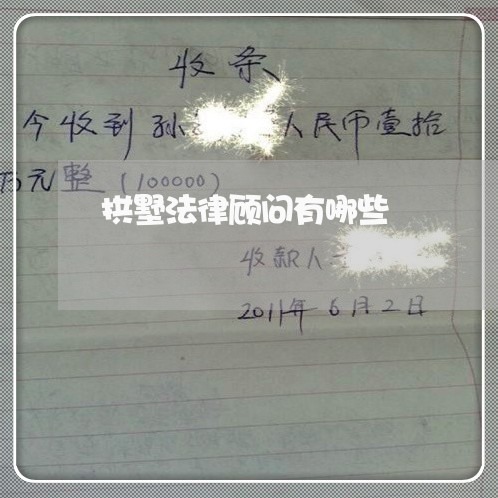 收条
今收到孙 人民币壹拾
万元整（100000）
拱墅法律顾问有哪些
收款人
2011年6月2日